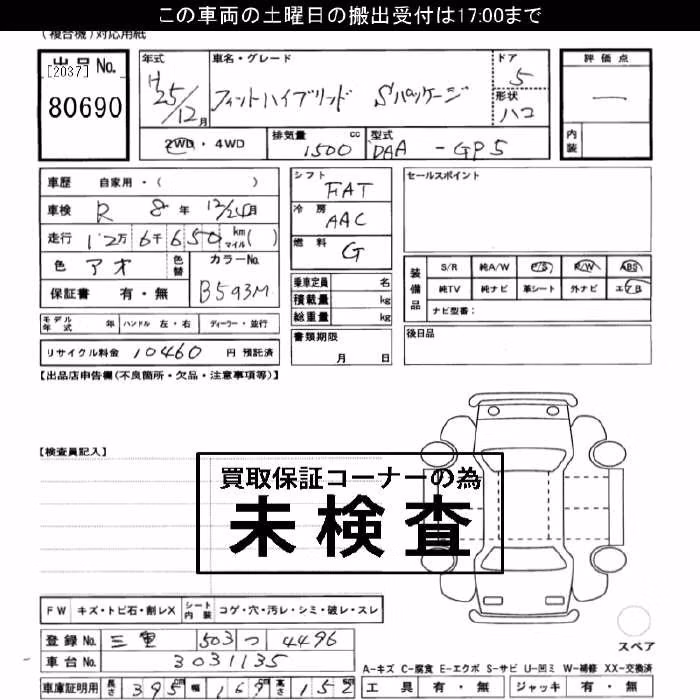 この車両の土曜日の搬出受付は17:00まで
(複合機)対応用紙
出品No.
[2037]
80690
年式
H25/12月
車名・グレード
フィットハイブリッド Sパッケージ
ドア
5
形状
ハコ
評価点
—
内装
2WD・4WD
排気量 1500 cc
型式 DAA - GP5
車歴 自家用・( )
車検 R 8年 12/24月
走行 12万6千650 km マイル( )
色 アオ 色替
カラーNo.
B593M
保証書 有・無
シフト FAT
冷房 AAC
燃料 G
乗車定員 名
積載量 kg
総重量 kg
書類期限
月 日
セールスポイント
装備品
S/R 純A/W P/S P/W ABS
純TV 純ナビ 革シート 外ナビ エアB
ナビ型番:
後日品
モデル年式 年 ハンドル 左・右 ディーラー・並行
リサイクル料金 10460 円 預託済
【出品店申告欄(不良箇所・欠品・注意事項等)】
【検査員記入】
買取保証コーナーの為
未検査
FW キズ・トビ石・割レX シート内装 コゲ・穴・汚レ・シミ・破レ・スレ
登録No. 三重 503 つ 4496
車台No. 3031135
車庫証明用 長さ 395cm 幅 169cm 高さ 152
スペア
A-キズ C-腐食 E-エクボ S-サビ U-凹ミ W-補修 XX-交換済
工具 有・無 ジャッキ 有・無